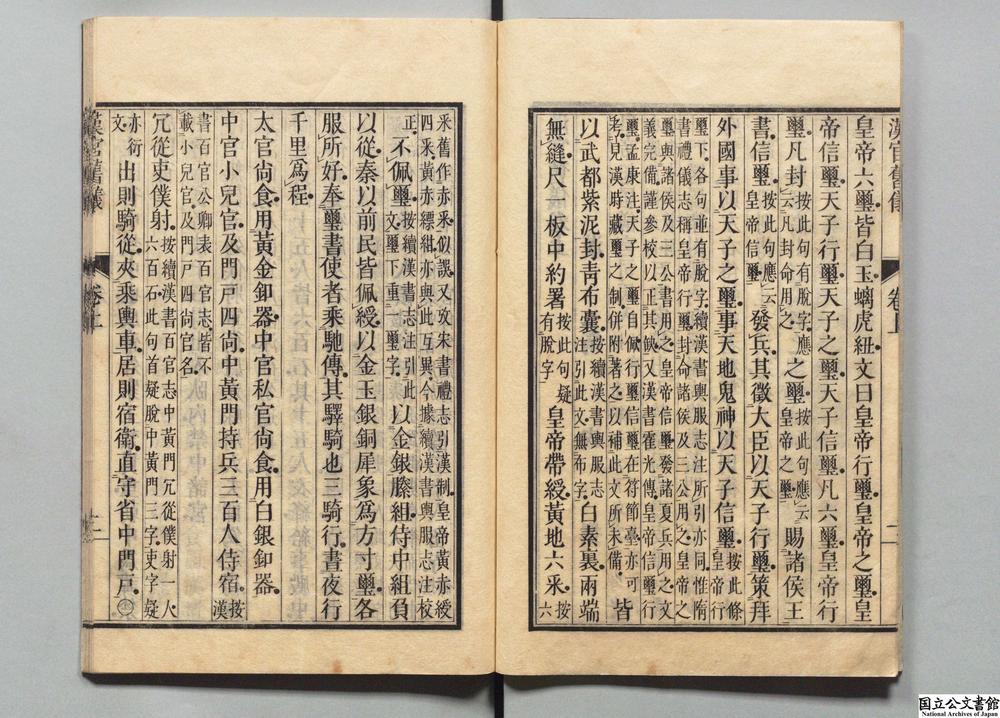 漢官舊儀 卷上 二
皇帝六璽皆白玉螭虎紐文曰皇帝行璽皇帝之璽皇
帝信璽天子行璽天子之璽天子信璽凡六璽皇帝行
璽凡封按此句有脫字應云凡封命用之之璽按此句應云皇帝之璽賜諸侯王
書信璽按此句應云皇帝信璽發兵其徵大臣以天子行璽策拜
外國事以天子之璽事天地鬼神以天子信璽按此條皇帝行
璽下各句並有脫字續漢書輿服志注所引亦同惟隋
書禮儀志稱皇帝行璽封命諸侯及三公用之皇帝之
璽與諸侯及三公書用之皇帝信璽發諸夏兵用之文
義完備謹參校以正其缺又漢書霍光傳皇帝信璽行
璽孟康注天子之璽自佩行璽信璽在符節臺亦可
考見漢時藏璽之制併附著之以補此文所未備皆
以武都紫泥封青布囊按續漢書輿服志注引此文無布字白素裏兩端
無縫尺一板中約署按此句疑有脫字皇帝帶綬黃地六采按六
采舊作赤采似誤又攷宋書禮志引漢制皇帝黃赤綬
四采黃赤縹紺亦與此互異今據續漢書輿服志注校
正不佩璽按續漢書志注引此文璽下重一璽字以金銀縢組侍中組負
以從秦以前民皆佩綬以金玉銀銅犀象爲方寸璽各
服所好奉璽書使者乘馳傳其驛騎也三騎行晝夜行
千里爲程
太官尚食用黃金釦器中官私官尚食用白銀釦器
中官小兒官及門戶四尚中黃門持兵三百人侍宿按漢
書百官公卿表百官志皆不
載小兒官及門戶四尚官名
冗從吏僕射按續漢書百官志中黃門冗從僕射一人六百石此句首疑脫中黃門三字吏字疑
亦衍文出則騎從夾乘輿車居則宿衛直守省中門戶
漢官舊儀 卷上 二
国立公文書館
National Archives of Japan